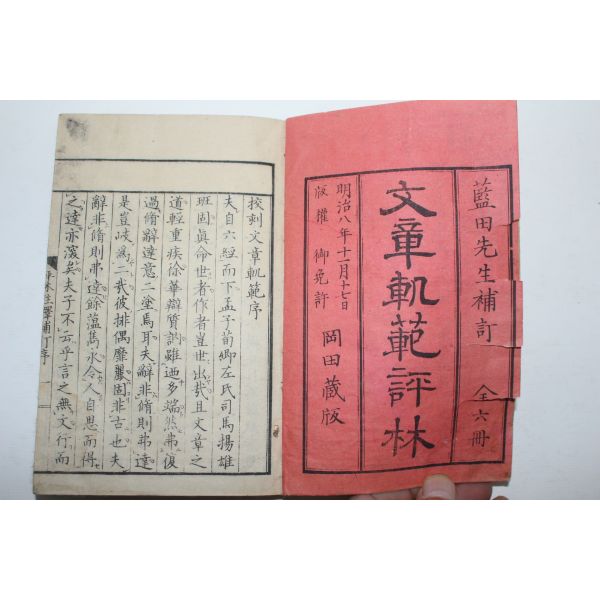 藍田先生補訂 全六冊
文章軌範評林
明治八年十二月十七日
版權 御免許 岡田蔵版
挍刻文章軌範序
夫自六經而下孟子荀卿左氏司馬揚雄
班固眞命世者作者豈世出哉且文章之
道輕重疾徐華辯質訓雖迺多端然弗復
過脩辭達意二塗焉耳夫辭非脩則弗達
是豈岐爲二哉彼排偶靡麗固非古也夫
辭非脩則弗達餘薀雋永令人自思而得
之達亦深矣夫子不云乎言之無文行而